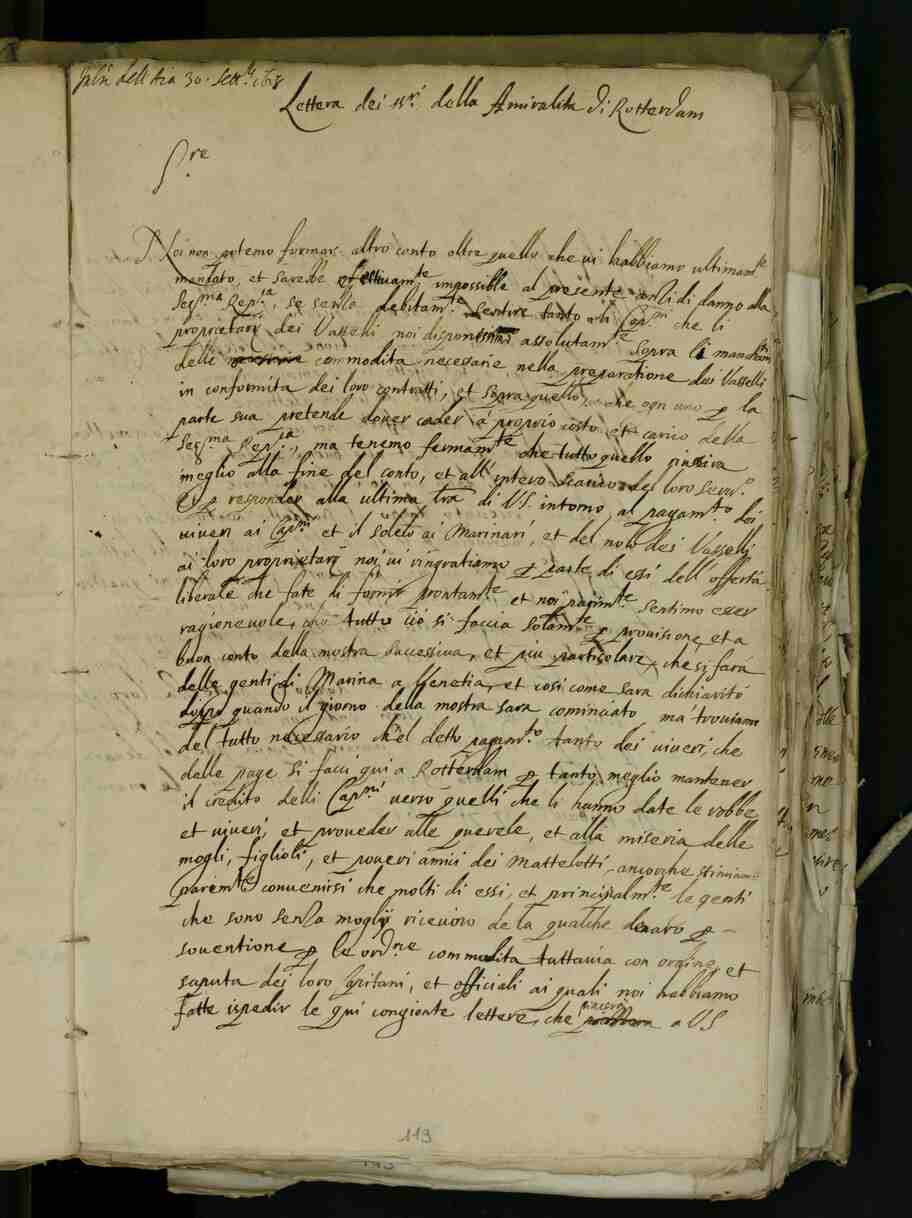 dell'Aia 30. Sett.re 1618
Lettera dei ss.ri della Amiralita di Rotterdam
S.re
Noi non potemo formar altro conto oltre quello che vi habbiamo ultimam.te
mandato, et sarebbe effettivam.te impossibile al presente di danno alla
Ser.ma Rep.ca, se senza debitam.te sentire tanto li Cap.ni che li
proprietarij dei Vasselli noi disponessimo assolutam.te sopra li
delle commodita necessarie nella preparatione dei Vasselli
in conformita dei loro contratti, et sopra quello, che ogn uno p la
parte sua pretende dover cader à proprio costo et carico della
Ser.ma Rep.ca, ma tenemo fermam.te che tutto quello
meglio alla fine del conto, et all' intero scarico del loro serv.o
Et p responder alla ultima l'ra di VS. intorno al pagam.to dei
viveri ai Cap.ni et il soldo ai Marinari, et del nolo dei Vasselli
ai loro proprietarij noi vi ringratiamo p parte di essi dell' offerta
liberale che fate di fornir prontam.te et noi parim.te sentimo esser
ragionevole, che tutto ciò si faccia solam.te p provisione, et a
buon conto della mostra successiva, et piu particolare, che si farà
delle genti di Marina a Venetia, et cosi come sara dichiarito
dopo quando il giorno della mostra sara cominciato ma troviamo
del tutto necessario ch'el detto pagam.to tanto dei viveri, che
delle page si facci qui a Rotterdam p tanto meglio mantener
il credito delli Cap.ni verso quelli che li hanno date le robbe
et viveri, et proveder alle querele, et alla miseria delle
mogli, figlioli, et poveri amici dei Mattelotti, ancorche stimiamo
parim.te convenirsi che molti di essi, et principalm.te le genti
che sono senza moglij ricevino de la qualche denaro p
soventione p le ord.ne commodita tuttavia con ordine, et
saputa dei loro Capitani, et officiali ai quali noi habbiamo
fatte ispedir le qui congionte lettere, che a VS
119